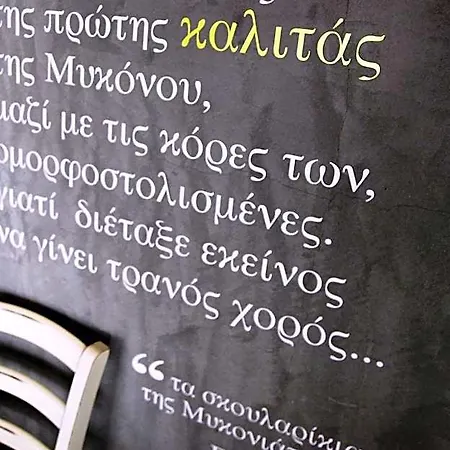 της πρώτης καλιτάς
της Μυκόνου,
μαζί με τις κόρες των,
ομορφοστολισμένες.
γιατί διέταξε εκείνος
να γίνει τρανός χορός...
“ τα σκουλαρίκια
της Μυκονιάτ